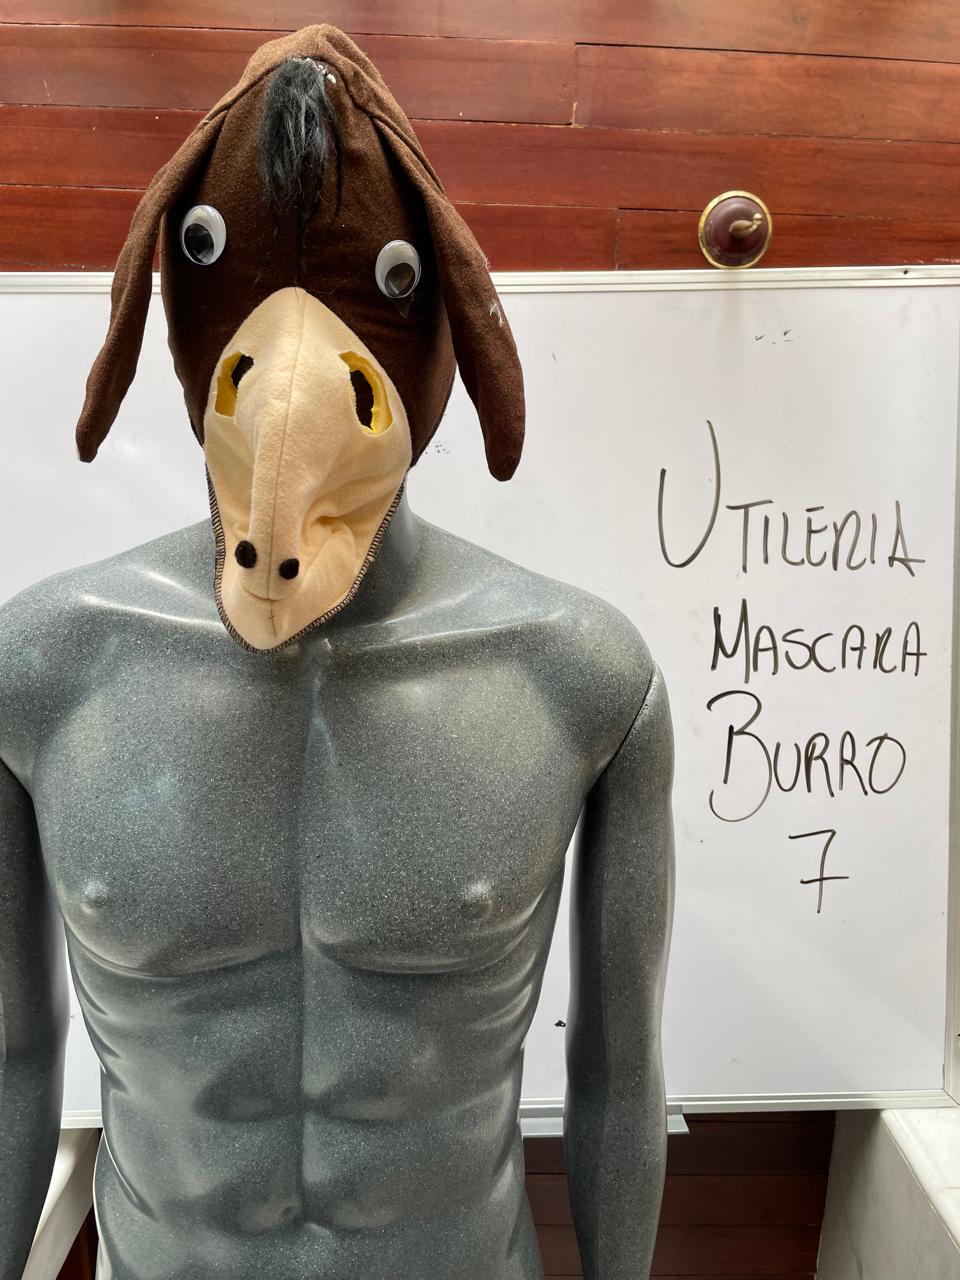 UTILERIA
MASCARA
BURRO
7